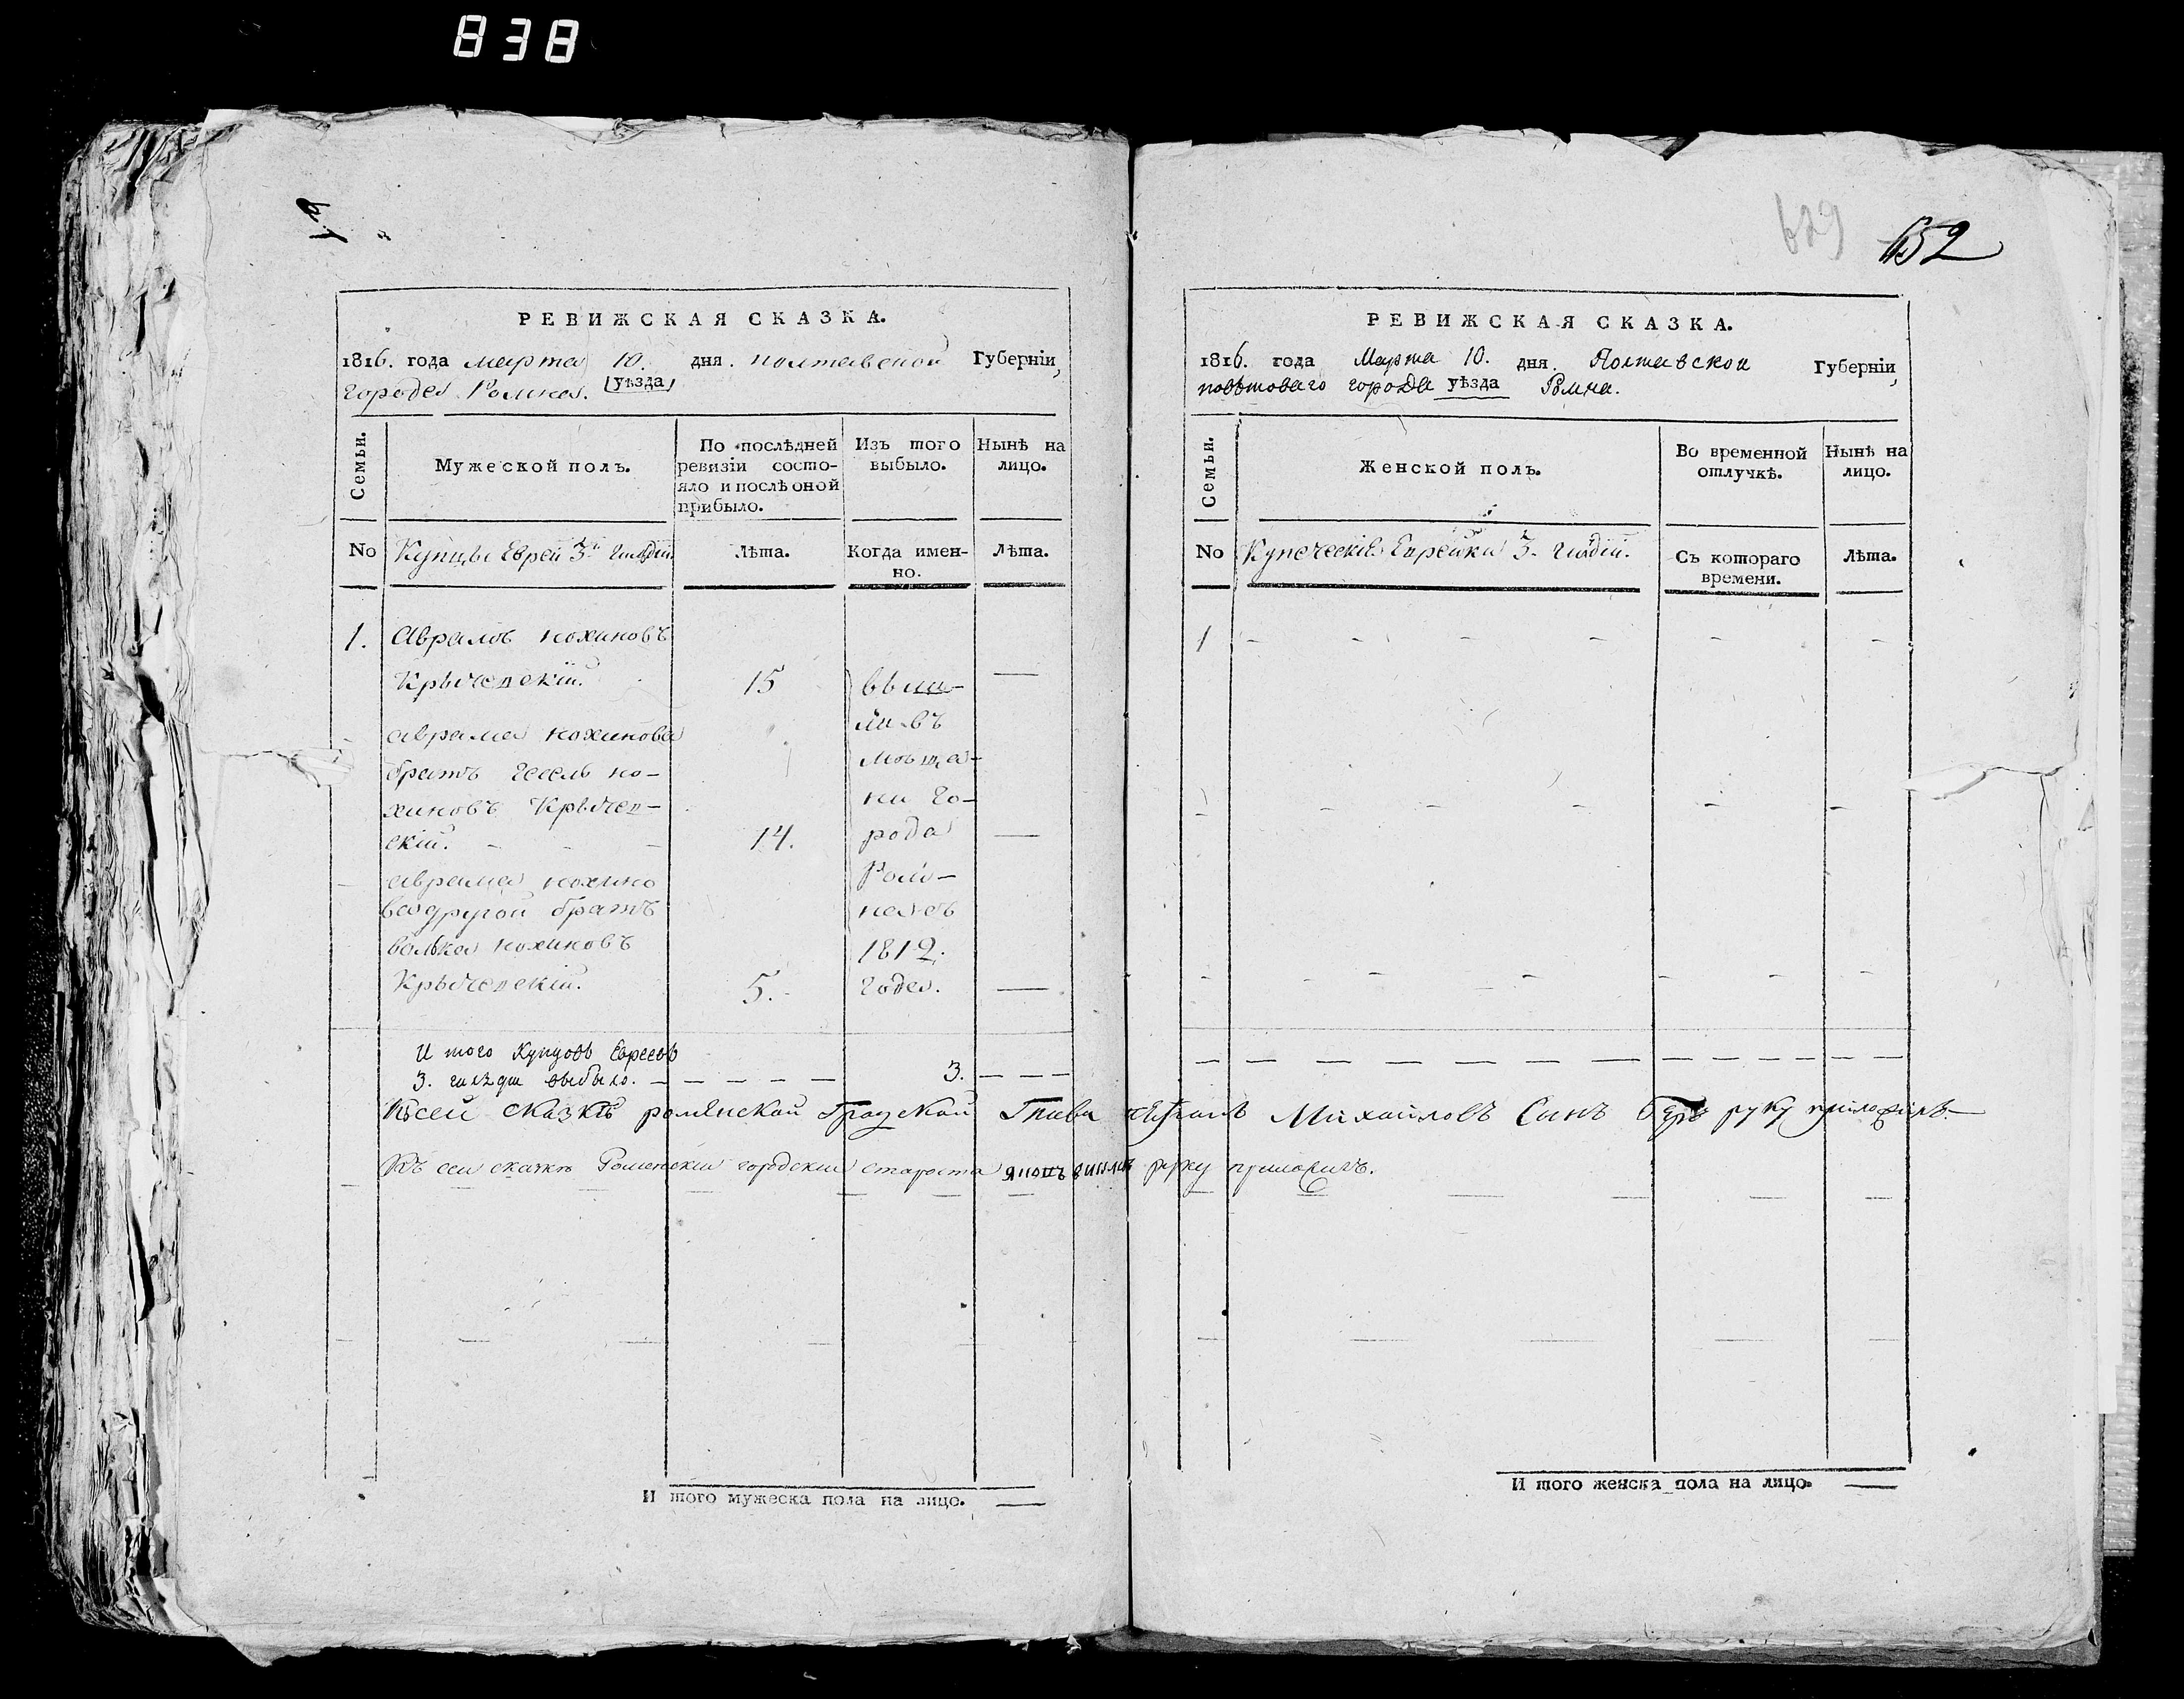 838
629
652
РЕВИЖСКАЯ СКАЗКА.
1816. года марта 10. дня. полтавской Губерніи,
города Ромна. уѣзда
Семьи.
Мужеской полъ.
По послѣдней
ревизіи состо-
яло и послѣ оной
прибыло.
Изъ того
выбыло.
Нынѣ на
лицо.
No
Купцы Евреи 3й гилдіи.
Лѣта.
Когда имен-
но.
Лѣта.
1. Аврамъ Кохановъ
Крычевскій. 15
аврама кохинова
братъ ко-
хиновъ Крычев-
скій. 14.
аврама кохино
ва другой братъ
волька кохиновъ
Крычевскій. 5.
выш-
ли въ
меща-
ни го-
рода
Ром-
на въ
1812.
года.
И того Купцовъ Евреевъ
3. гилдіи выбыло. 3.
Къ сей сказкѣ роменской Градской Глава Михайловъ Синъ руку приложилъ.
Къ сей скаскѣ Роменский городский староста руку приложилъ.
И того мужеска пола на лицо.
РЕВИЖСКАЯ СКАЗКА.
1816. года Марта 10. дня. Полтавской Губерніи,
повѣтоваго города уѣзда Ромна.
Семьи.
Женской полъ.
Во временной
отлучкѣ.
Нынѣ на
лицо.
No
Купеческіе Еврейки 3. гилдіи.
Съ котораго
времени.
Лѣта.
1
И того женска пола на лицо.